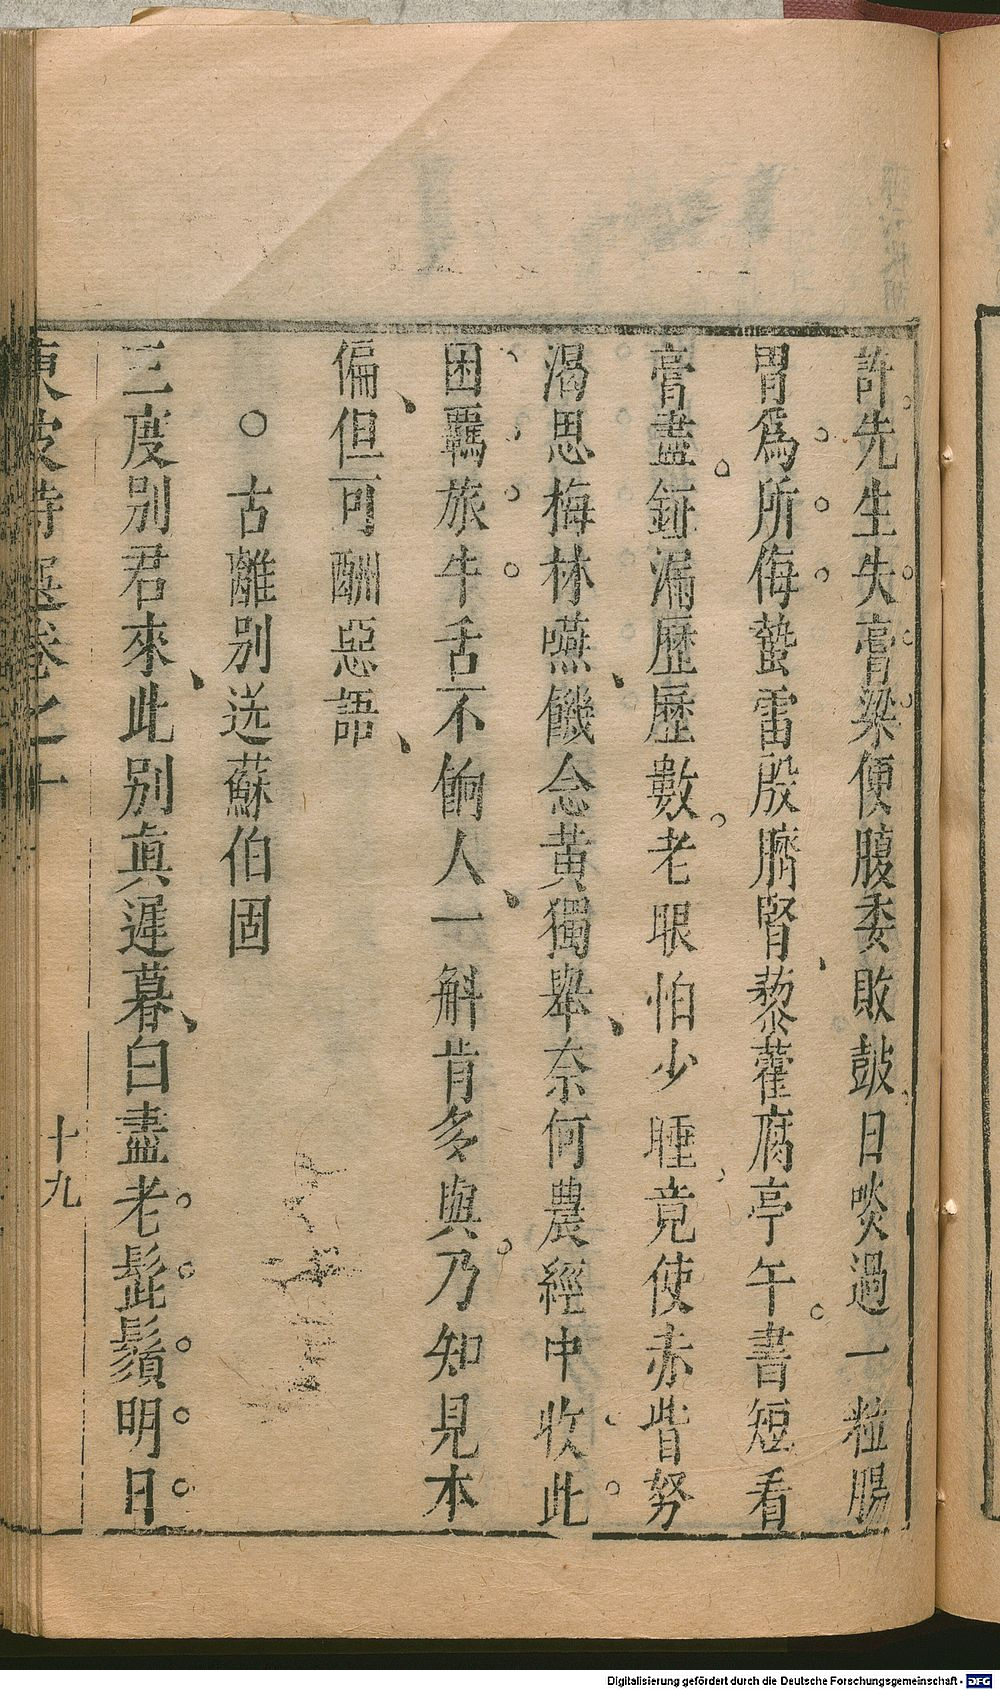 許先生失膏粱便腹委敗鼓日啖過一粒腸
胃爲所侮蟄雷殷臍腎藜藿腐亭午書短看
膏盡鉦漏歷歷數老眼怕少睡竟使赤眥努
渴思梅林嚥饑念黃獨舉奈何農經中收此
困羈旅牛舌不餉人一斛肯多與乃知見本
偏但可酬惡語
○古離別送蘇伯固
三度別君來此別真遲暮白盡老髭鬚明日
東坡詩選卷之十
十九
Digitalisierung gefördert durch die Deutsche Forschungsgemeinschaft - DFG